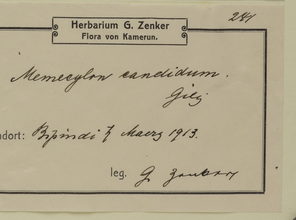 Herbarium G. Zenker
Flora von Kamerun.
241
Memecylon candidum.
Gilg
ndort: Bipindi März 1913.
leg. G. Zenker